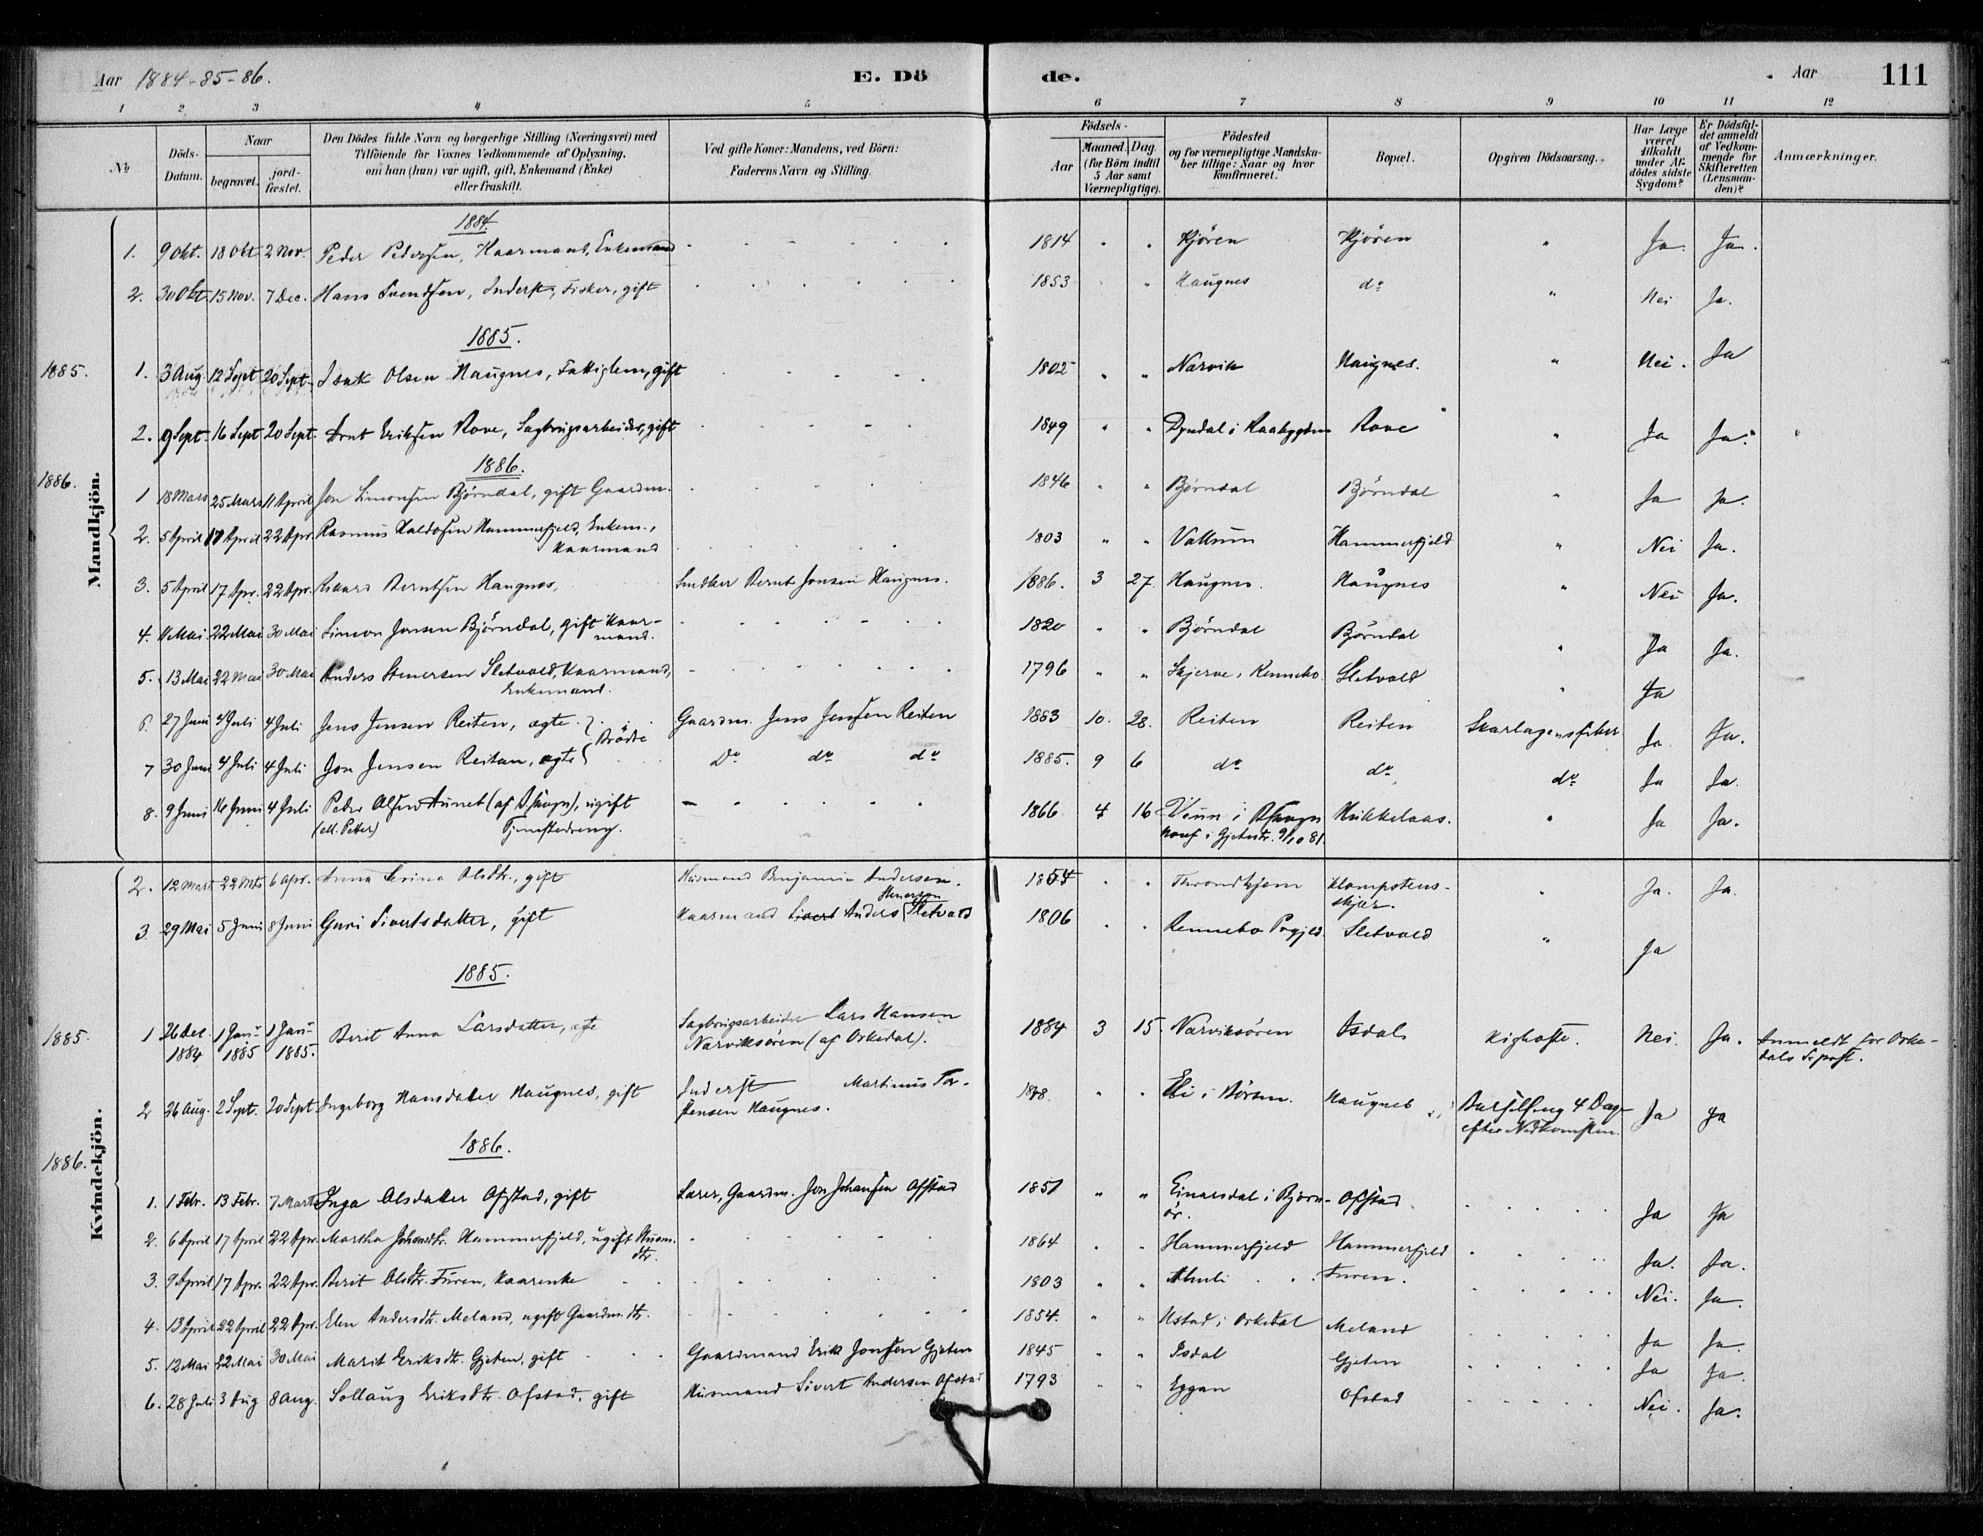 Aar 1884-85-86. E. Dö de. Aar 111
1 2 3 4 5 6 7 8 9 10 11 12
No
Döds-Datum.
Naar
begravet.
jord-fæstet.
Den Dödes fulde Navn og borgerlige Stilling (Næringsvei) med
Tilföiende for Voxnes Vedkommende af Oplysning,
om han (hun) var ugift, gift, Enkemand (Enke)
eller fraskilt.
Ved gifte Koner: Mandens, ved Börn:
Faderens Navn og Stilling.
Födsels-
Aar
Maaned. Dag.
(for Börn indtil
5 Aar samt
Værnepligtige).
Födested
og for værnepligtige Mandska-
ber tillige: Naar og hvor
Konfirmeret.
Bopæl.
Opgiven Dödsaarsag.
Har Læge
været
tilkaldt
under Af-
dödes sidste
Sygdom?
Er Dödsfal-
det anmeldt
af Vedkom-
mende for
Skifteretten
(Lensman-
den)?
Anmærkninger.
Mandkjön.
1884.
1. 9 Okt. 18 Okt. 2 Nov. Peder Pedersen, Kaarmand, Enkemand 1814 " " Kjören Kjören " Ja. Ja.
2. 30 Okt. 15 Nov. 7 Dec. Hans Svendsen, Inderst, Fisker, gift 1853 " Haugnes do " Nei Ja.
1885.
1885. 1. 3 Aug. 12 Sept 20 Sept. Isak Olsen Haugnes, Fattiglem, gift 1802 " " Narvik Haugnes. " Nei. Ja
2. 9 Sept. 16 Sept 20 Sept. Arnt Eriksen Rove, Sagbrugsarbeider, gift 1849 " " Dyrdal i Raabygden Rove " Ja Ja.
1886.
1886. 1 18 Mars 25 Mars 11 April Jon Simonsen Björndal, gift Gaardm. 1846 " " Björndal Björndal " Ja Ja.
2. 5 April 17 April 22 Apr. Rasmus Haldosen Hammerfjeld, Enkem.,
Kaarmand 1803 " " Valsum Hammerfjeld " Nei Ja.
3. 5 April 17 Apr. 22 Apr. Rikard Berntsen Haugnes, Snedker Bernt Jonsen Haugnes. 1886. 3 27. Haugnes. Haugnes " Nei Ja.
4. 11 Mai 22 Mai 30 Mai Simon Jonsen Björndal, gift Kaar-
mand. 1820 " " Björndal Björndal " Ja Ja.
5. 13 Mai 22 Mai 30 Mai Anders Stenersen Sletvold, Kaarmand,
Enkemand. 1796 " " Skjerve i Rennebo Sletvold " Ja
6. 27 Juni 4 Juli 4 Juli Jens Jensen Reiten, ægte Brödre Gaardm. Jens Jensen Reiten 1883 10. 28. Reiten Reiten Skarlagensfeber Ja Ja.
7 30 Juni 4 Juli 4 Juli Jon Jensen Reitan, ægte Do do do 1885. 9 6 do do do Ja Ja.
8. 9 Juni 16 Juni 4 Juli Peder Olsen Aunet (af Afavgn), ugift
(ell. Petter) Tjenestedreng. 1866 4 16 i
konf. i Gjeitastr. 9/10 81. " Ja Ja.
Kvindekjön.
2. 12 Mart. 22 Mts 6 Apr. Anna Serina Olsdtr., gift Husmand Benjamin Andersen. 1854 " " Throndhjem Klompstens-
skjær. " Ja. Ja.
3. 29 Mai 5 Juni 8 Juni Guri Sivertsdatter, gift Kaarmand Sivert Anders Stenersen Sletvold 1806 " " Rennebo Prgjeld. Sletvold " Ja
1885.
1885. 1 26 Dec. 1884 1 Jan. 1885 1 Jan. 1885. Berit Anna Larsdatter, ægte Sagbrugsarbeider Lars Hansen
Narviksören (af Orkedal). 1884 3 15. Narviksören Isdal Kighoste. Nei. Ja. Anmeldt for Orke-
dals Sepræst.
2 26 Aug. 2 Sept. 20 Sept Ingeborg Hansdatter Haugnes, gift Inderst Martinus Tor-
stensen Haugnes. " " Eli i Börsen. Haugnes Barselseng 4 Dage
efter Nedkomsten. Ja Ja
1886.
1886. 1. 1 Febr. 13 Febr. 7 Marts Inga Olsdatter Ofstad, gift Lærer, Gaardm. Jon Johansen Ofstad 1851 " " Einarsdal i Björn-
ör. Ofstad. Ja Ja
2. 6 April 17 April 22 Apr. Martha Johansdtr. Hammerfjeld, ugift Husm.
dtr. 1864 " " Hammerfjeld Hammerfjeld Ja. Ja.
3. 9 April 17 Apr. 22 Apr. Berit Olsdtr. Furen, Kaarenke 1803 " " Almli Furen. Nei. Ja.
4. 13 April 22 April 22 Apr. Elen Andersdtr. Meland, ugift Gaardm. dtr. 1854. " " Ustad i Orkedal Meland Ja Ja.
5. 12 Mai 22 Mai 30 Mai Marit Eriksdtr. Gjeten, gift Gaardmand Erik Jonsen Gjeten 1845 " " Isdal Gjeten Ja Ja.
6. 28 Juli 3 Aug 8 Aug. Sollaug Eriksdtr. Ofstad, gift Husmand Sivert Andersen Ofstad 1793 " " Eggan Ofstad Nei. Ja.